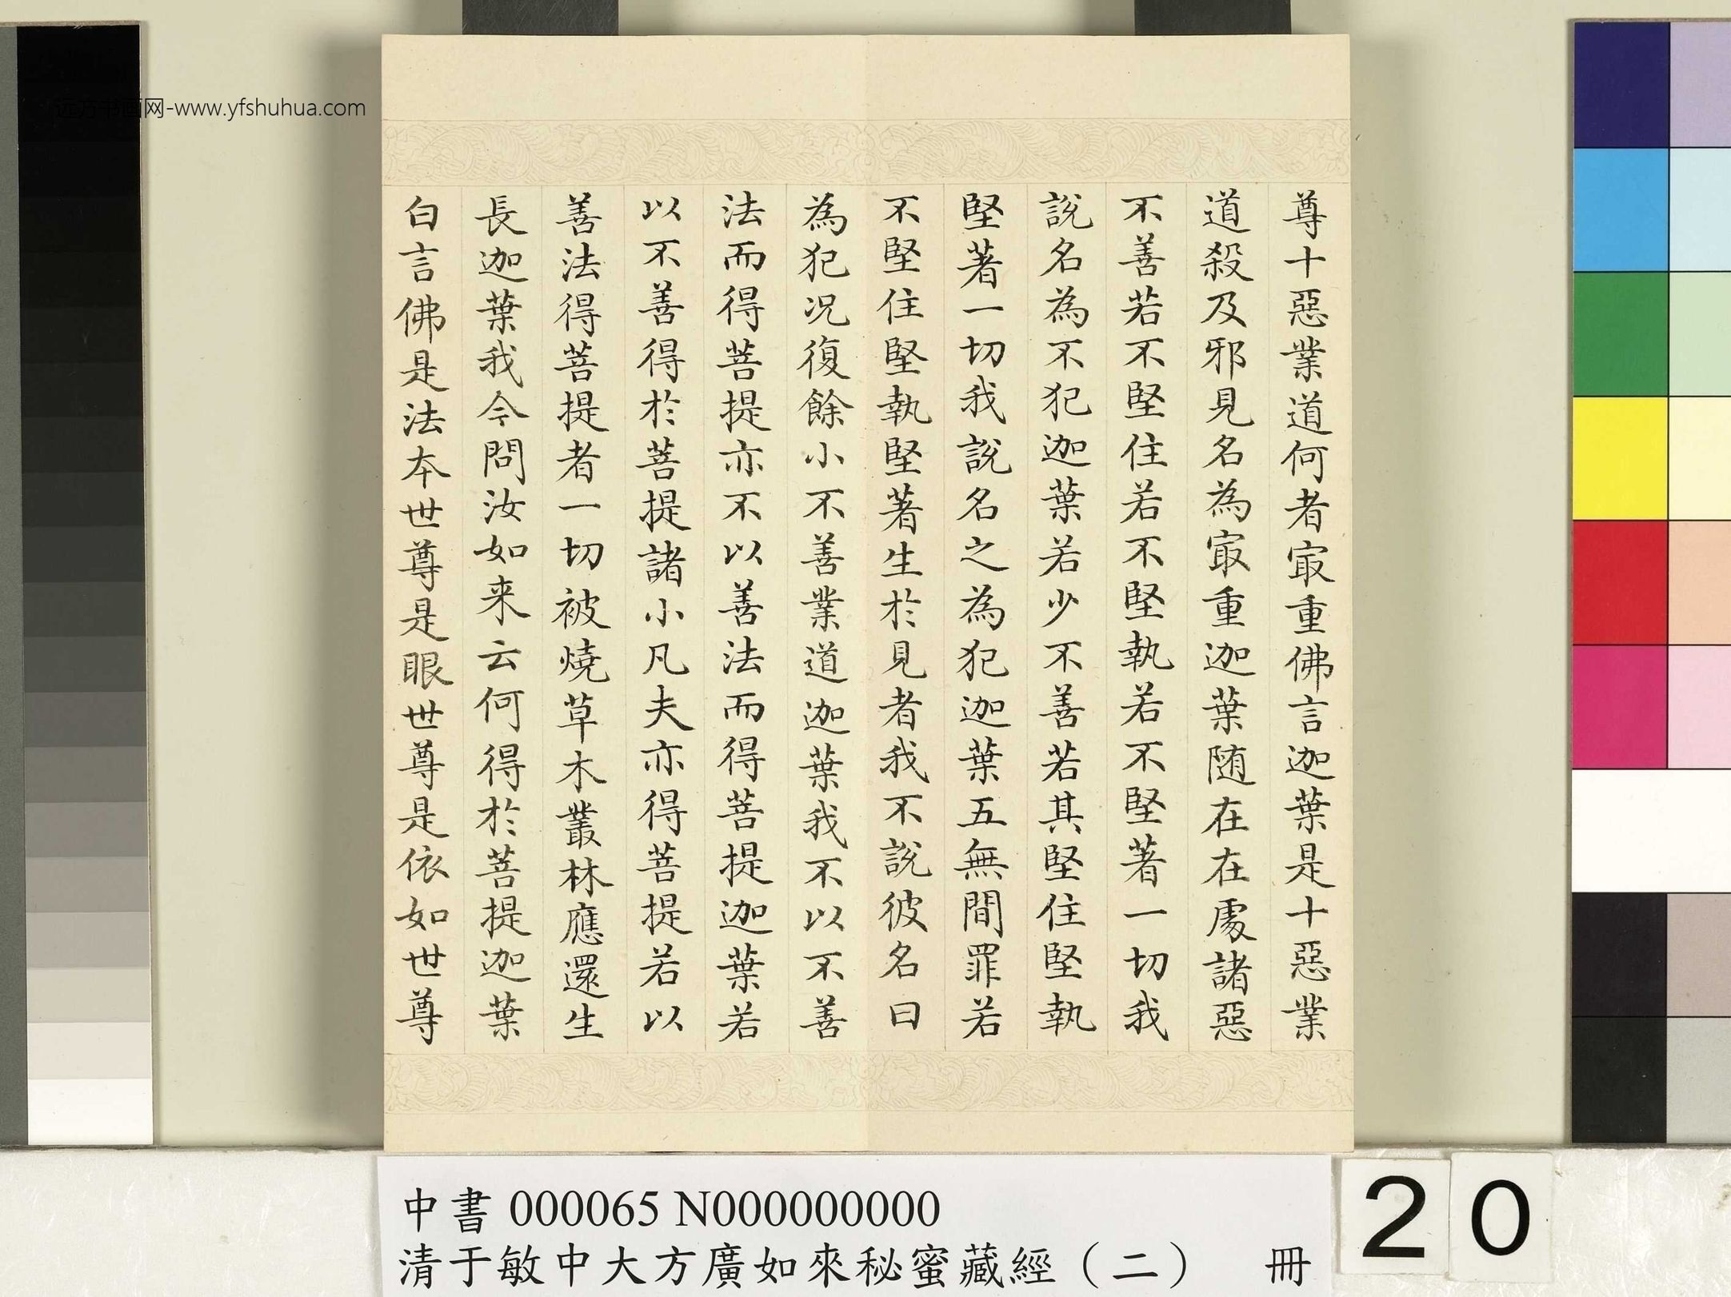 尊十惡業道何者冣重佛言迦葉是十惡業
道殺及邪見名為冣重迦葉随在在處諸惡
不善若不堅住若不堅執若不堅著一切我
說名為不犯迦葉若少不善若其堅住堅執
堅著一切我說名之為犯迦葉五無間罪若
不堅住堅執堅著生於見者我不說彼名曰
為犯况復餘小不善業道迦葉我不以不善
法而得菩提亦不以善法而得菩提迦葉若
以不善得於菩提諸小凡夫亦得菩提若以
善法得菩提者一切被燒草木叢林應還生
長迦葉我今問汝如来云何得於菩提迦葉
白言佛是法本世尊是眼世尊是依如世尊
网-www.yfshuhua.com
中書 000065 N000000000
清于敏中大方廣如來秘蜜藏經（二） 冊
20